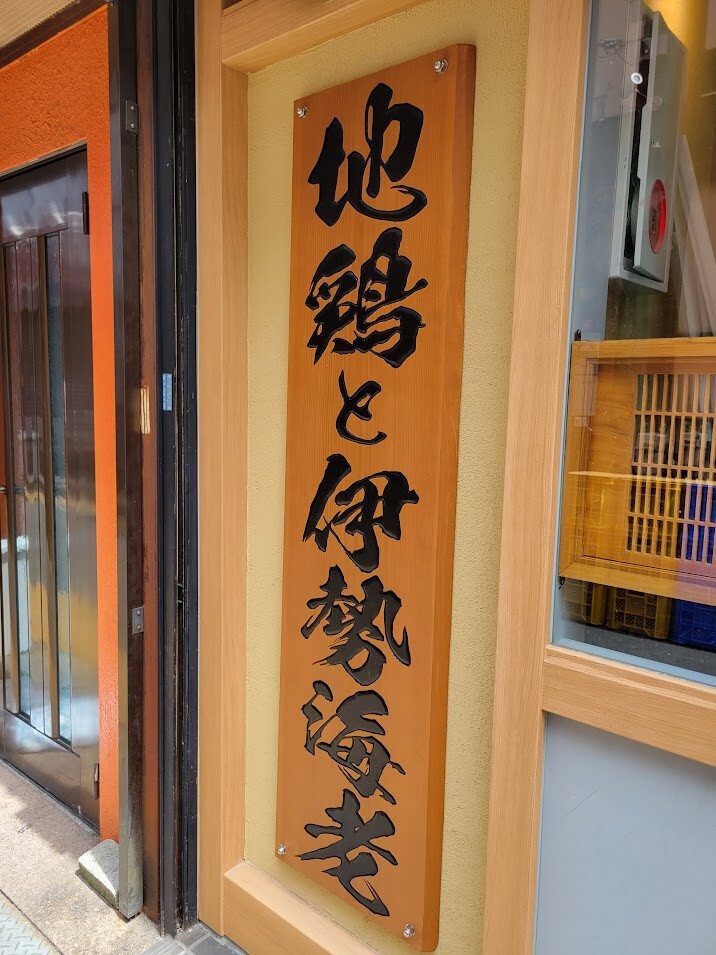 地鶏と伊勢海老